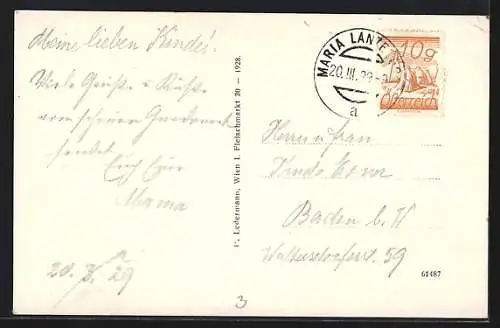 Meine lieben Kinder!
Viele Grüße u. Küsse
vom schönen
sendet Euch Eure
Mama
20. 29
P. Ledermann, Wien I. Fleischmarkt 20 — 1928.
MARIA LANZE
20. III. 29
a
10g
Österreich
Herrn u Frau
Baden b. W
59
61487
3